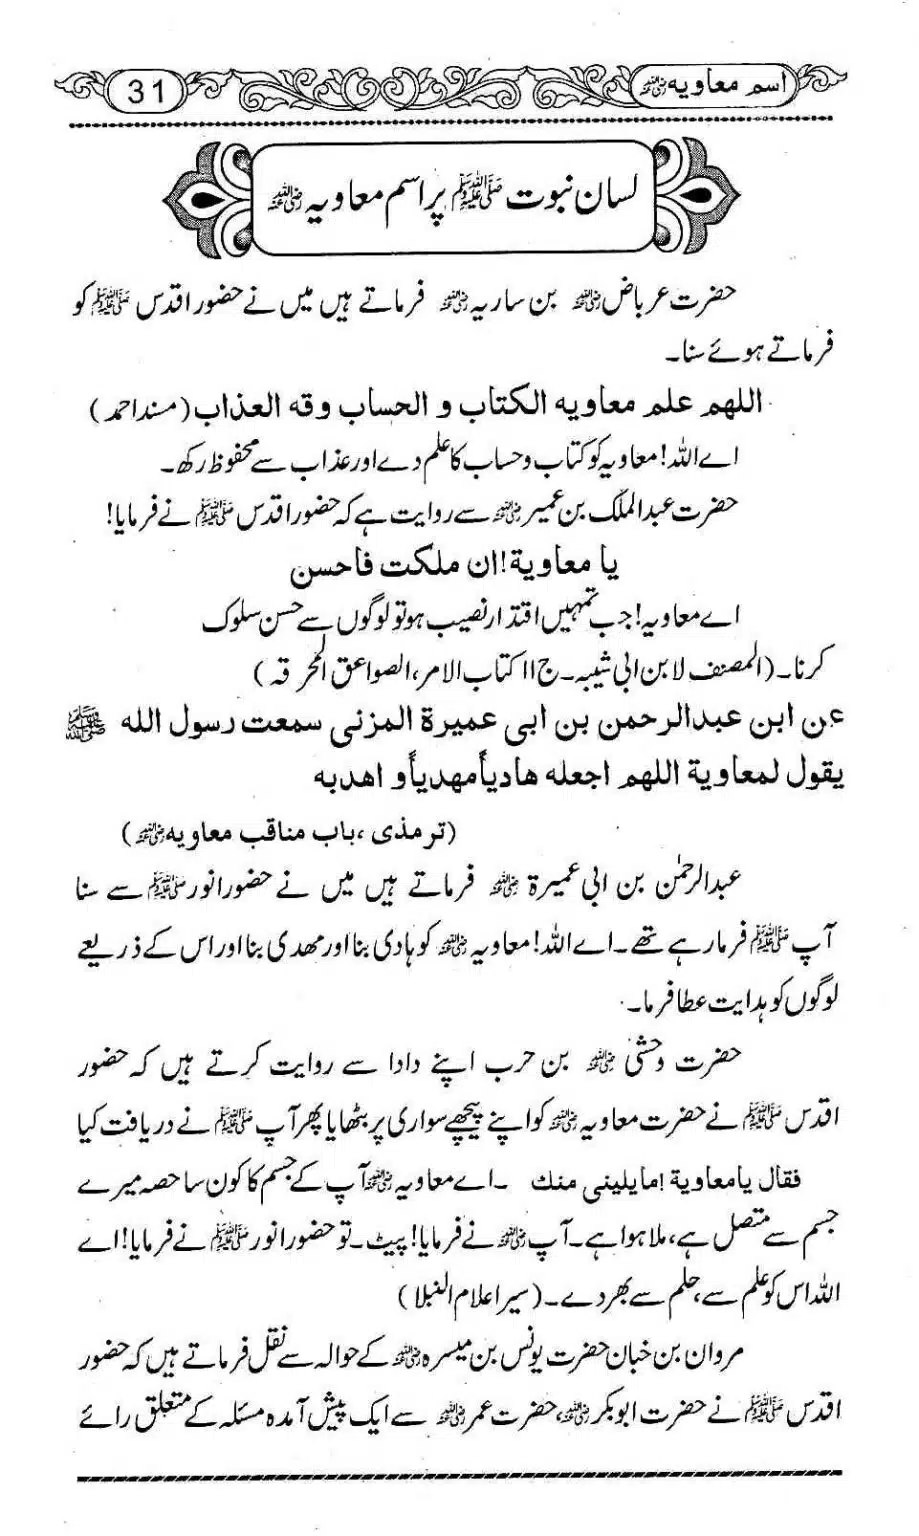 اسم معاویہ ؓ
31
لسان نبوت ﷺ پر اسم معاویہ ؓ
حضرت عرباض ؓ بن ساریہ ؓ فرماتے ہیں میں نے حضور اقدس ﷺ کو
فرماتے ہوئے سنا۔
اللهم علم معاویه الکتاب و الحساب وقه العذاب (مسند احمد)
اے اللہ! معاویہ کو کتاب و حساب کا علم دے اور عذاب سے محفوظ رکھ۔
حضرت عبدالملک بن عمیر ؓ سے روایت ہے کہ حضور اقدس ﷺ نے فرمایا!
یا معاویة! ان ملکت فاحسن
اے معاویہ! جب تمہیں اقتدار نصیب ہو تو لوگوں سے حسن سلوک
کرنا۔ (المصنف لابن ابی شیبہ۔ ج ۱۱ کتاب الامر، الصواعق المحرقہ)
عن ابن عبدالرحمن بن ابی عمیرة المزنی سمعت رسول الله ﷺ
یقول لمعاویة اللهم اجعله هادیاً مهدیاً و اهدبه
(ترمذی، باب مناقب معاویہ ؓ)
عبدالرحمٰن بن ابی عمیرة ؓ فرماتے ہیں میں نے حضور انور ﷺ سے سنا
آپ ﷺ فرما رہے تھے۔ اے اللہ! معاویہ ؓ کو ہادی بنا اور مھدی بنا اور اس کے ذریعے
لوگوں کو ہدایت عطا فرما۔
حضرت وحشی ؓ بن حرب اپنے دادا سے روایت کرتے ہیں کہ حضور
اقدس ﷺ نے حضرت معاویہ ؓ کو اپنے پیچھے سواری پر بٹھایا پھر آپ ﷺ نے دریافت کیا
فقال یا معاویة! ما یلینی منك ۔ اے معاویہ ؓ آپ کے جسم کا کون سا حصہ میرے
جسم سے متصل ہے، ملا ہوا ہے۔ آپ ؓ نے فرمایا! پیٹ۔ تو حضور انور ﷺ نے فرمایا! اے
اللہ اس کو علم سے، حلم سے بھر دے۔ (سیر اعلام النبلا)
مروان بن خبان حضرت یونس بن میسرہ ؓ کے حوالہ سے نقل فرماتے ہیں کہ حضور
اقدس ﷺ نے حضرت ابوبکر ؓ، حضرت عمر ؓ سے ایک پیش آمدہ مسئلہ کے متعلق رائے